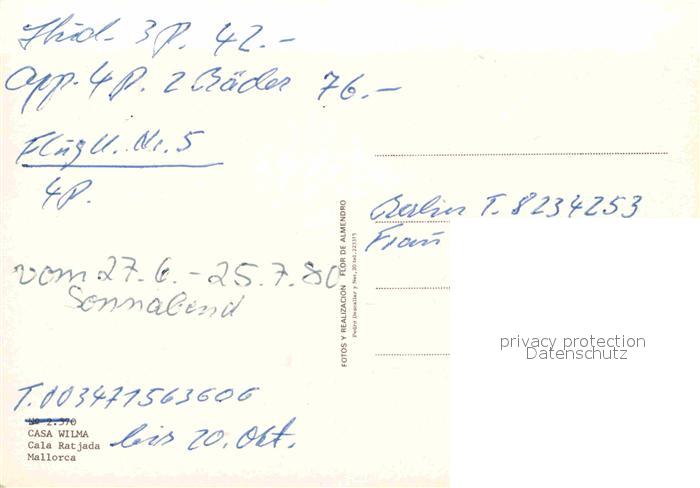 Stud. 3 P. 42.-
App. 4 P. 2 Bäder 76.-
Flug U. Nr. 5
4 P.
vom 27.6. - 25.7.80
Sonnabend
T. 003471563606
bis 20. Okt.
Nº 2.370
CASA WILMA
Cala Ratjada
Mallorca
FOTOS Y REALIZACION FLOR DE ALMENDRO
Pedro Dezcallar y Net, 20 tel. 223315
Berlin T. 8234253
Frau
privacy protection
Datenschutz